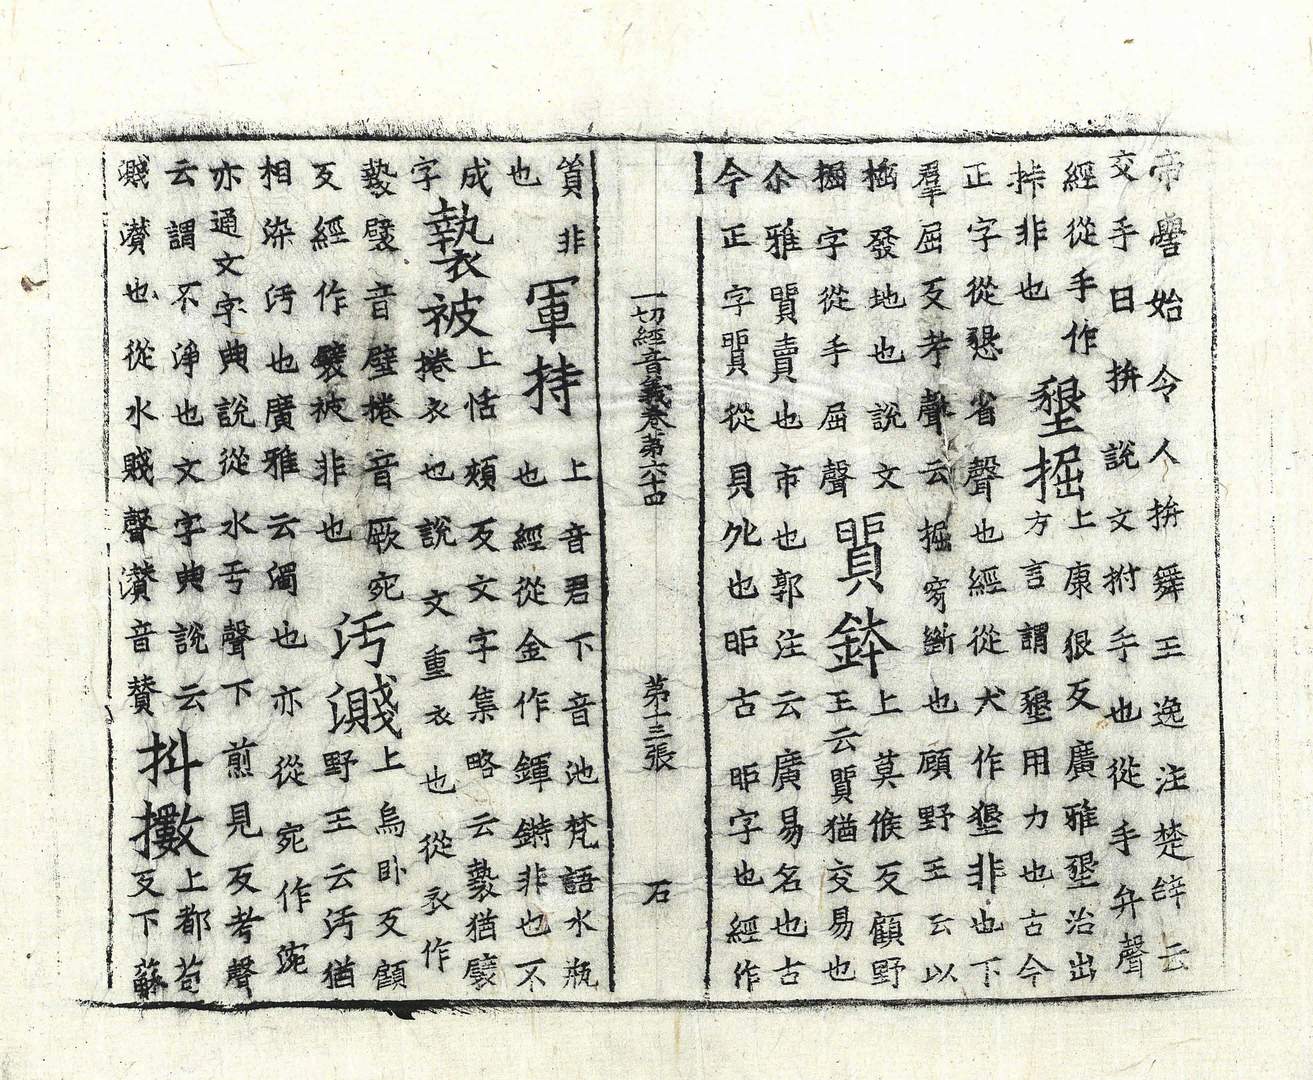 帝嚳始令人拚舞王逸注楚辭云
交手曰拚說文拊手也從手弁聲
經從手作
挊非也
墾掘
上康佷反廣雅墾治出
方言謂墾用力也古今
正字從懇省聲也經從犬作墾非也下
羣屈反考聲云掘穿斷也顧野王云以
發地也說文
掘字從手屈聲
貿鉢
上莫候反顧野
王云貿猶交易也
尒雅貿賣也市也郭注云廣易名也古
今正字貿從貝戼也戼古戼字也經作
一切經音義卷第六十四 第十三張 石
貿非
也
軍持
上音君下音池梵語水瓶
也經從金作鍕鍗非也不
成
字
褺被
上恬頰反文字集略云褺猶襞
捲衣也說文重衣也從衣作
褺襞音壁捲音厥宛
反經作襞被非也
汚濺
上烏卧反顧
野王云汚猶
相染汚也廣雅云濁也亦從宛作涴
亦通文字典說從水亐聲下煎見反考聲
云謂不淨也文字典說云
濺灒也從水賤聲灒音賛
抖擻
上都苟
反下蘇